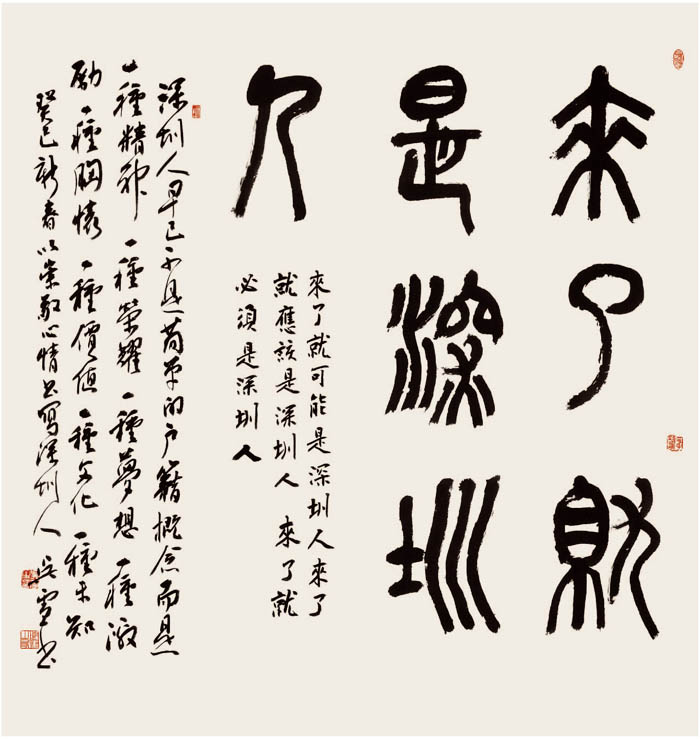 來了就
是深圳
人
來了就可能是深圳人來了
就應該是深圳人 來了就
必須是深圳人
深圳人早已不是簡單的户籍概念而是
一種精神 一種榮耀 一種夢想 一種激
勵 一種胸懷 一種價值 一種文化 一種未知
癸巳新春以崇敬心情書寫深圳人 吳雪書